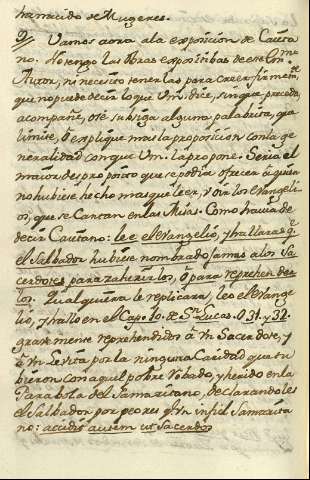 ha nacido de Mugeres.
9/ Vamos aora ala exposicion de Caieta
no. No tengo las Obras expositibas de este Em.mo
Autor, ni necesito tenerlas para creer firmem.te
que no puede decir lo que Vm. dice, sin que preceda,
acompañe, ó se subsiga alguna palabrita, que
limite, ó explique mas la proposicion con la ge
neralidad con que Vm. la propone. Seria el
maior despropósito que se podia ofrecer á quien
no hubiese hecho mas que leer, y oir los Evangeli
os, que se Cantan en las Misas. Como havia de
decir Caietano: lee el Evangelio, y hallaras q.e
el Salbador hubiese nombrado jamas a los Sa
cerdotes para zaherirlos, ó para reprehender
los. Qualquiera le replicara, leo el Evange
lio, y hallo en el Cap.o 10. de Sn. Lucas. v. 31. y 32.
gravemente reprehendidos á Vn Sacerdote, y
á Vn Levita por la ninguna Caridad que tu
bieron con aquel pobre robado, y herido en la
Parabola del Samaritano, declarandoles
el Salbador por peores q.e Vn infiel Samarita
no: accidit autem ut Sacerdos